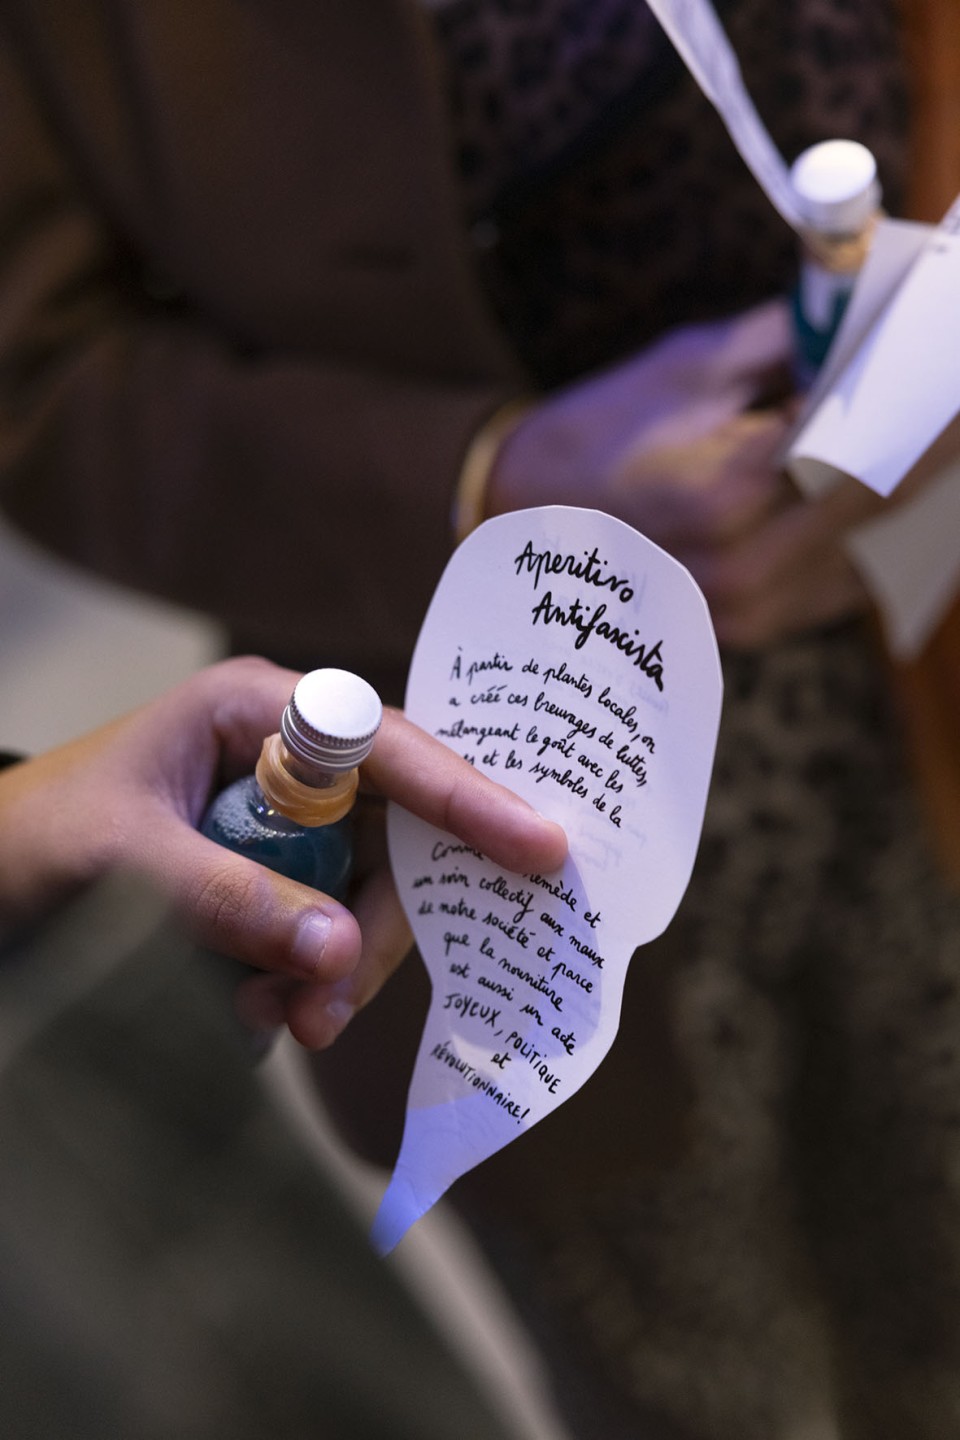 Aperitivo
Antifascista
À partir de plantes locales, on
a créé ces breuvages de luttes,
mélangeant le goût avec les
et les symboles de la
remède et
un soin collectif aux maux
de notre société et parce
que la nourriture
est aussi un acte
JOYEUX, POLITIQUE
et
RÉVOLUTIONNAIRE!